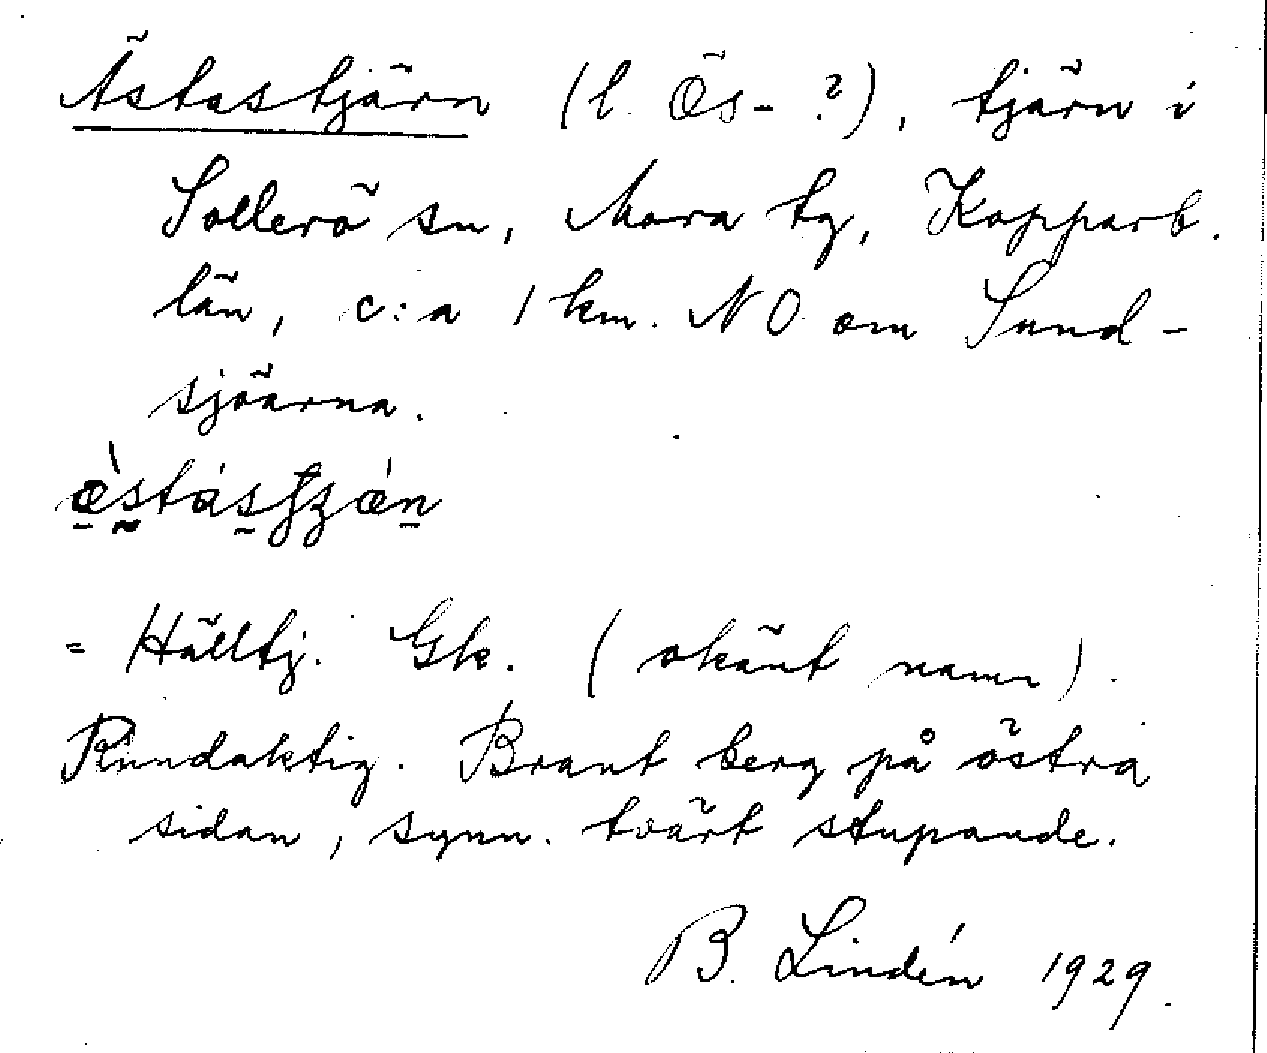 Ästastjärn (l. Ös- ?), tjärn i
Sollerö sn, Mora tg, Kopparb.
län, c:a 1 km. NO om Sund-
sjöarna.
= Hälltj. Gk. (okänt namn).
Rundaktig. Brant berg på östra
sidan, synn. tvärt stupande.
B. Lindén 1929.